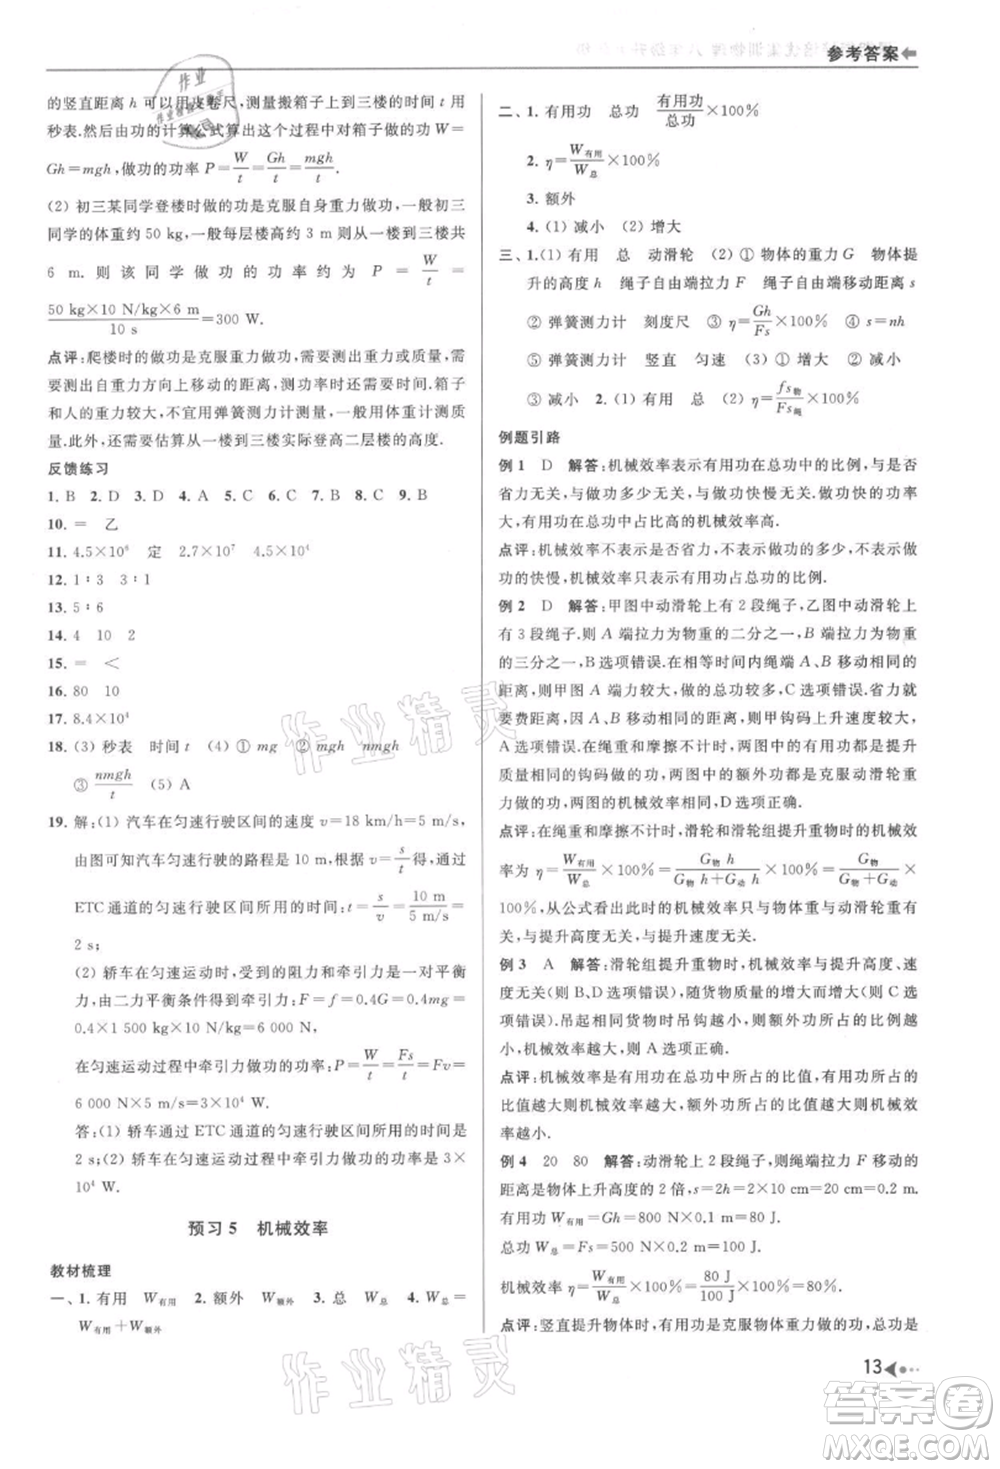 参考答案
的竖直距离 h 可以用皮卷尺，测量搬箱子上到三楼的时间 t 用
秒表.然后由功的计算公式算出这个过程中对箱子做的功 W＝
Gh＝mgh，做功的功率 P＝W/t＝Gh/t＝mgh/t.
(2) 初三某同学登楼时做的功是克服自身重力做功,一般初三
同学的体重约 50 kg，一般每层楼高约 3 m 则从一楼到三楼共
6 m. 则该同学做功的功率约为 P＝W/t＝
50 kg×10 N/kg×6 m/10 s＝300 W.
点评:爬楼时的做功是克服重力做功,需要测出体重或质量,需
要测出在重力方向上移动的距离,测功率还要测出时间.箱子
和人的重力较大，不宜用弹簧测力计测量，应用磅秤测质
量.此外，还需要估算从一楼到三楼实际登高二层楼的高度.
反馈练习
1. B 2. D 3. D 4. A 5. C 6. B 7. C 8. B 9. B
10. ＝ 乙
11. 4.5×10⁶ 定 2.7×10⁷ 4.5×10⁴
12. 1∶3 3∶1
13. 5∶6
14. 4 10 2
15. ＝ ＜
16. 80 10
17. 8.4×10⁴
18. (3) 秒表 时间 t (4) ① mg ② mgh nmgh
③ nmgh/t (5) A
19. 解:(1) 汽车在匀速行驶区间的速度 v＝18 km/h＝5 m/s,
由图可知汽车匀速行驶的路程是 10 m,根据 v＝s/t 得,通过
ETC 通道的匀速行驶区间所用的时间:t＝s/v＝10 m/5 m/s＝
2 s;
(2) 轿车在匀速运动时,受到的阻力和牵引力是一对平衡
力，由二力平衡条件得到牵引力的大小：F＝f＝0.4mg＝
0.4×1 500 kg×10 N/kg＝6 000 N,
在匀速运动过程中牵引力做功的功率:P＝W/t＝Fs/t＝Fv＝
6 000 N×5 m/s＝3×10⁴ W.
答:(1) 轿车通过 ETC 通道的匀速行驶区间所用的时间是
2 s;(2) 轿车在匀速运动过程中牵引力做功的功率是 3×
10⁴ W.
预习 5 机械效率
教材梳理
一、1. 有用 W有用 2. 额外 W额外 3. 总 W总 4. W总＝
W有用＋W额外
二、1. 有用功 总功 有用功/总功×100%
2. η＝W有用/W总×100%
3. 额外
4. (1) 减小 (2) 增大
三、1.(1) 有用 总 动滑轮 (2) ① 物体的重力 G 物体提
升的高度 h 绳子自由端拉力 F 绳子自由端移动距离 s
② 弹簧测力计 刻度尺 ③ η＝Gh/Fs×100% ④ s＝nh
⑤ 弹簧测力计 竖直 匀速 (3) ① 增大 ② 减小
③ 减小 2. (1) 有用 总 (2) η＝fs物/Fs绳×100%
例题引路
例 1 D 解答:机械效率表示有用功在总功中的比例,与是否
省力无关，与做功快慢无关，做功快慢用功率表示，与功的大小无
关.有用功在总功中占比高的机械效率高.
点评:机械效率不表示是否省力,不表示做功的多少,不表示做
功的快慢,机械效率只表示有用功占总功的百分比.
例 2 D 解答:甲图中动滑轮上有 2 段绳子,乙图中动滑轮上
有 3 段绳子.则 A 端拉力为物重的二分之一,B 端拉力为物重
的三分之一,B 选项错误.在相等时间中绳端 A、B 移动相同的
距离,则图 A 端拉力较大,做功较大,C 选项错误.省力较大就
要费距离,图 A、B 移动相同的距离,则甲钩码上升速度较大,
A 选项错误.绳重和摩擦不计时，两图中的额外功是克服动滑轮
的重力做功,两图中的有用功是克服钩码的重力做功.两个相
同的钩码做功相同,两图的机械效率相同,D 选项正确.
点评:在绳重和摩擦不计时,滑轮和滑轮组提升重物时的机械效
率为 η＝W有用/W总×100%＝G物 h/G物 h＋G动 h×100%＝G物/G物＋G动×
100%,从公式看出此时的机械效率只与物体重和动滑轮重有
关,与提升高度无关,与提升速度无关.
例 3 A 解答:滑轮组提升重物时，机械效率与提升高度无关，
选项 B、D 错误.机械效率与物体重力有关,随货物质量的增大而增大,C 选项
错误.吊起相同的货物时吊钩越小,有用功所占的比值越大,
机械效率越大,则 A 选项正确.
点评:机械效率是有用功在总功中所占的比值,有用功所占的
比值越大则机械效率越大,额外功所占的比值越大则机械效
率越小.
例 4 20 80 解答:动滑轮上 2 段绳子,则绳端拉力 F 移动的
距离是物体上升高度的 2 倍,s＝2h＝2×0.1 m＝0.2 m.
有用功 W有用＝Gh＝800 N×0.1 m＝80 J.
总功 W总＝Fs＝500 N×0.2 m＝100 J.
机械效率 η＝W有用/W总×100%＝80 J/100 J×100%＝80%.
点评:竖直提升物体时,有用功是克服物体重力做功,总功是
13
作业精灵
作业精灵
答案圈
MXQE.COM